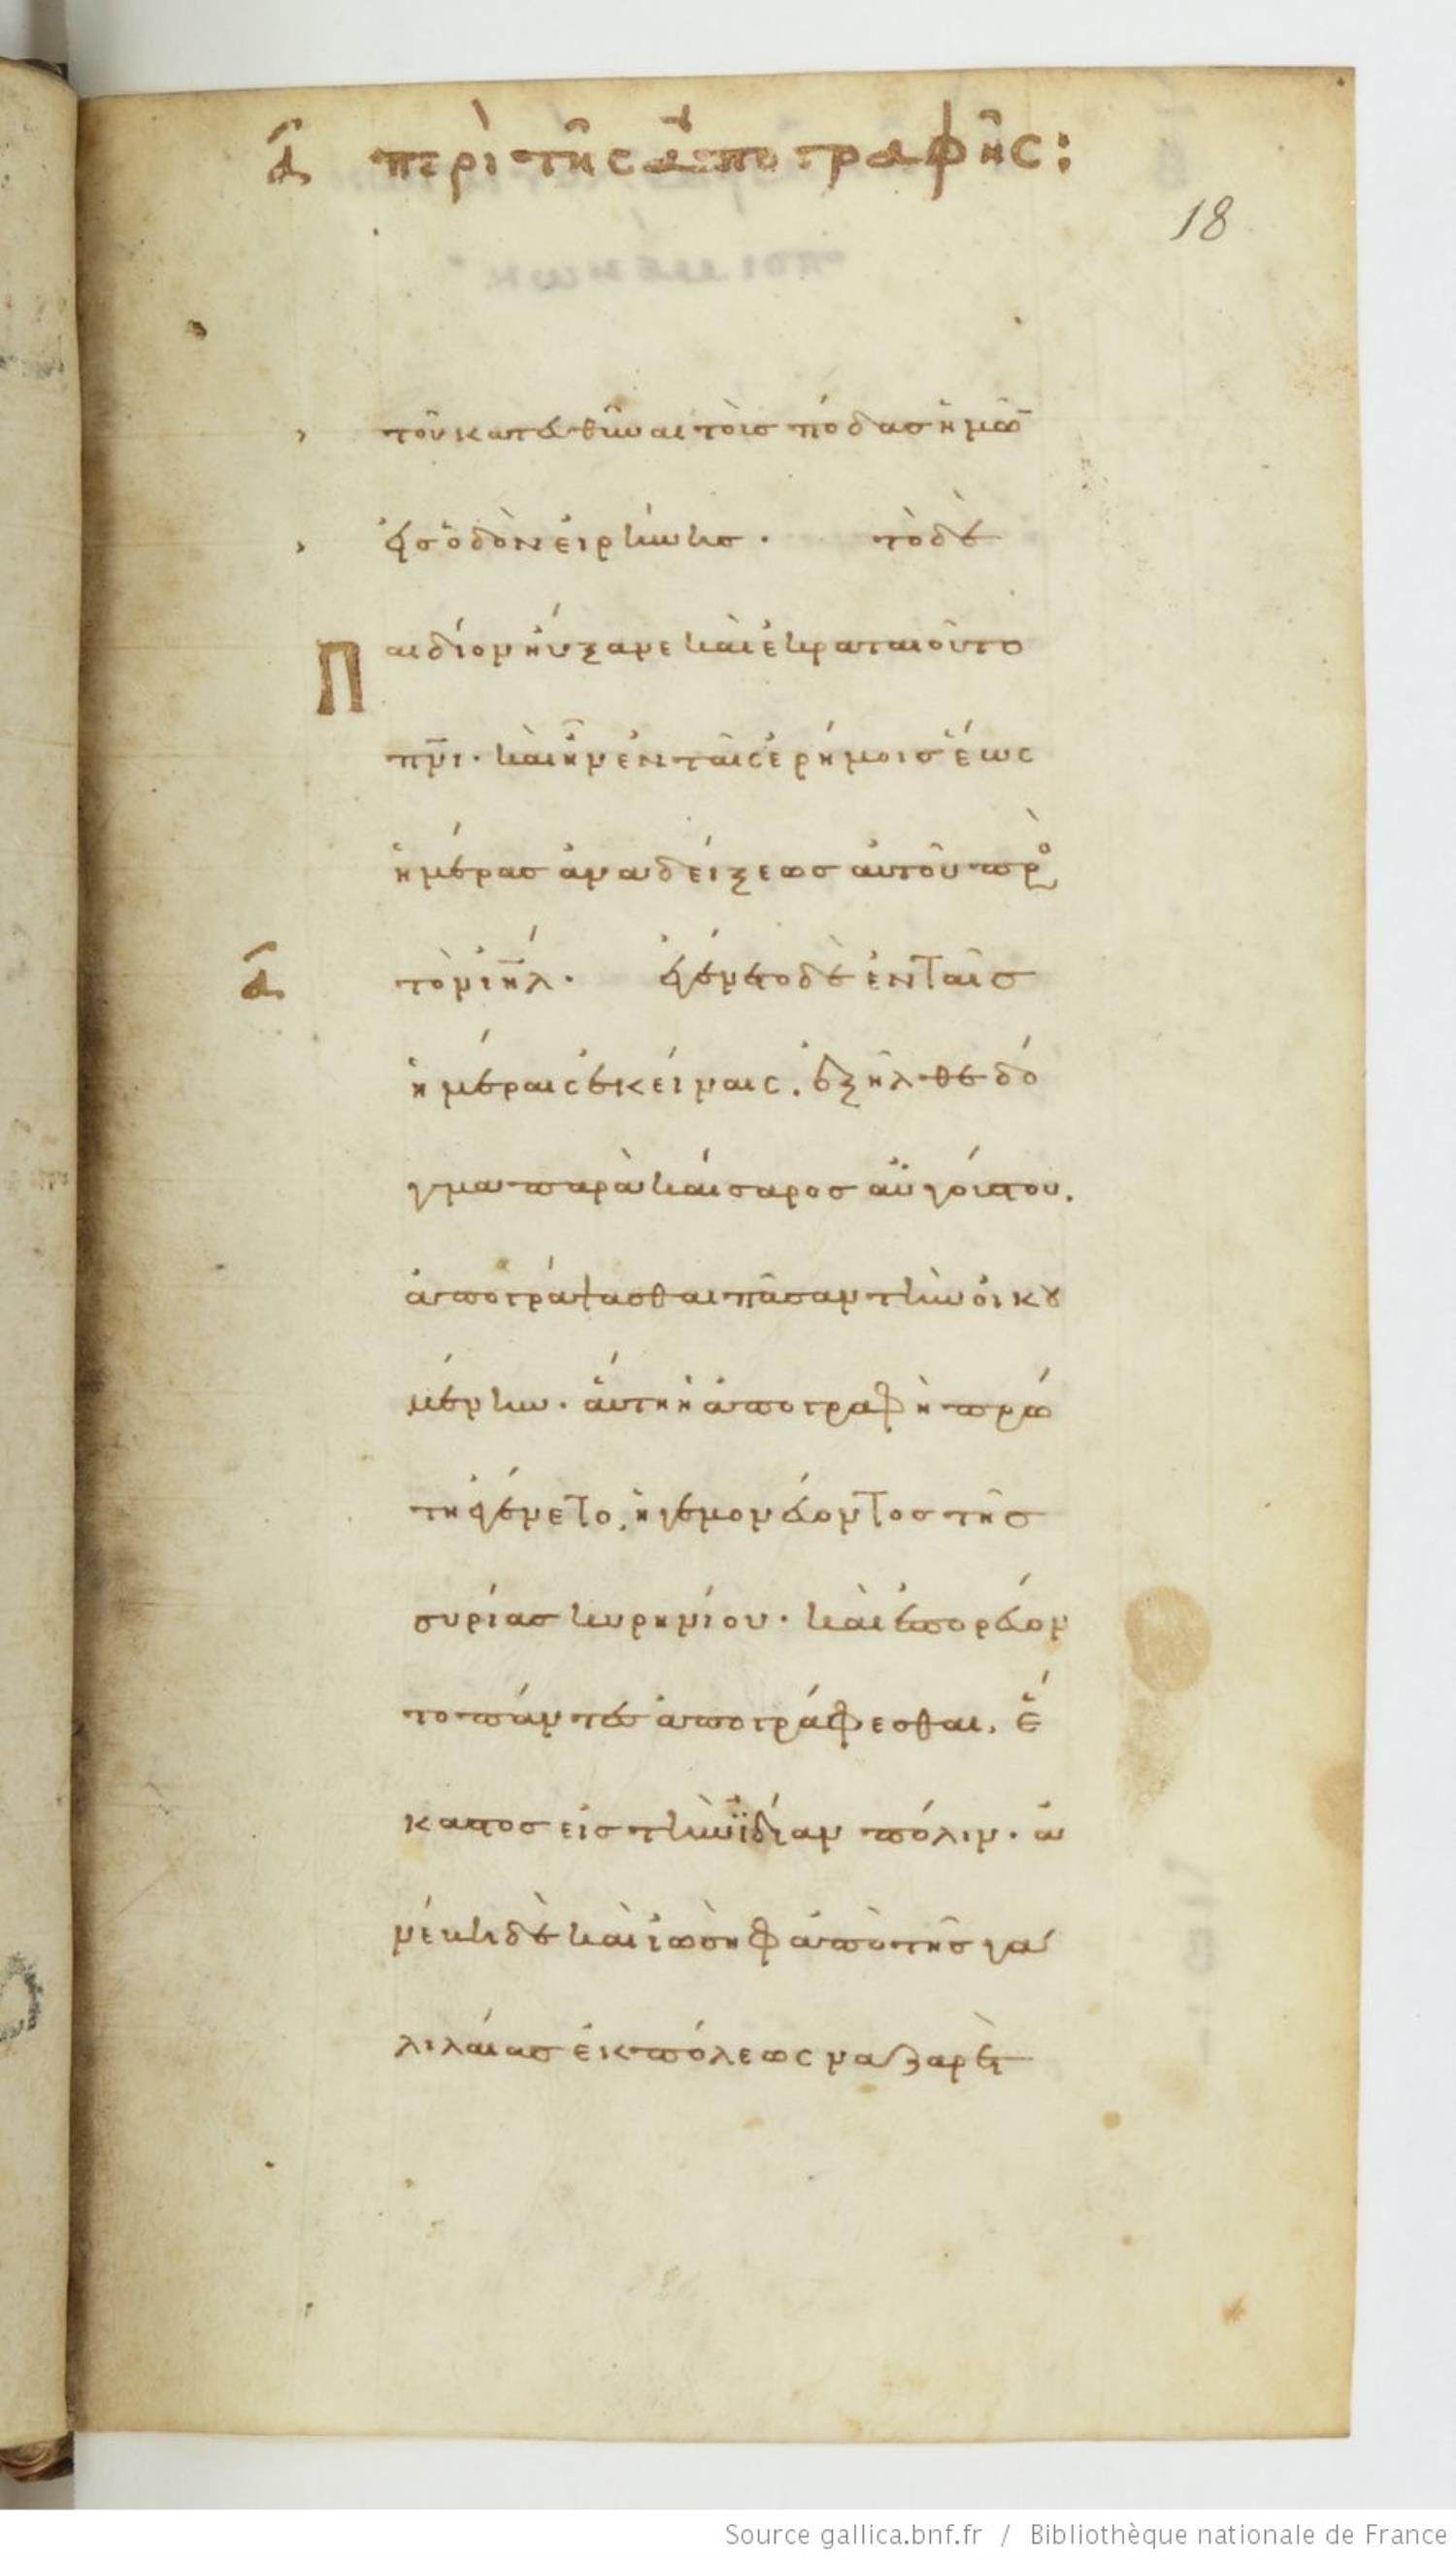 α περὶ τῆς ἀπογραφῆς:
18
τοῦ κατευθῦναι τοὺς πόδας ἡμῶ̅
εἰς ὁδὸν εἰρήνης. τὸ δὲ
Παιδίον ηὔξανε καὶ ἐκραταιοῦτο
πνι· καὶ ἦν ἐν ταῖς ἐρήμοις ἕως
ἡμέρας ἀναδείξεως αὐτοῦ πρὸ
α τὸν ιηλ· ἐγένετο δὲ ἐν ταῖς
ἡμέραις ἐκείναις. ἐξῆλθε δό
γμα παρὰ καίσαρος αὐγούστου.
ἀπογράψασθαι πᾶσαν τὴν οἰκου
μένην. αὕτη ἡ ἀπογραφὴ πρώ
τη ἐγένετο, ἡγεμονεύοντος τῆς
συρίας κυρηνίου· καὶ ἐπορεύον
το πάντες ἀπογράφεσθαι. ἕ
καστος εἰς τὴν ἰδίαν πόλιν. ἀ
νέβη δὲ καὶ ἰωσὴφ ἀπὸ τῆς γα
λιλαίας ἐκ πόλεως ναζαρὲτ
Source gallica.bnf.fr / Bibliothèque nationale de France